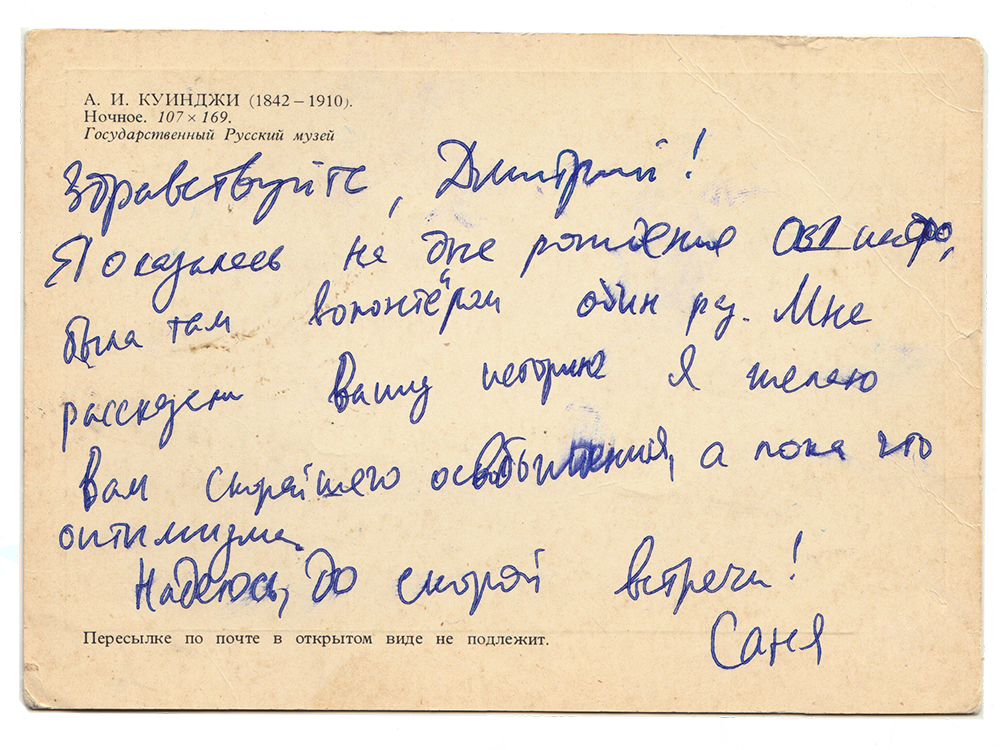 А. И. КУИНДЖИ (1842 – 1910).
Ночное. 107 × 169.
Государственный Русский музей
Здравствуйте, Дмитрий!
Я оказалась на дне рождения ОВД инфо,
была там волонтёром один раз. Мне
рассказали Вашу историю Я желаю
Вам скорейшего освобождения, а пока что
оптимизма.
Надеюсь, до скорой встречи!
Саня
Пересылке по почте в открытом виде не подлежит.